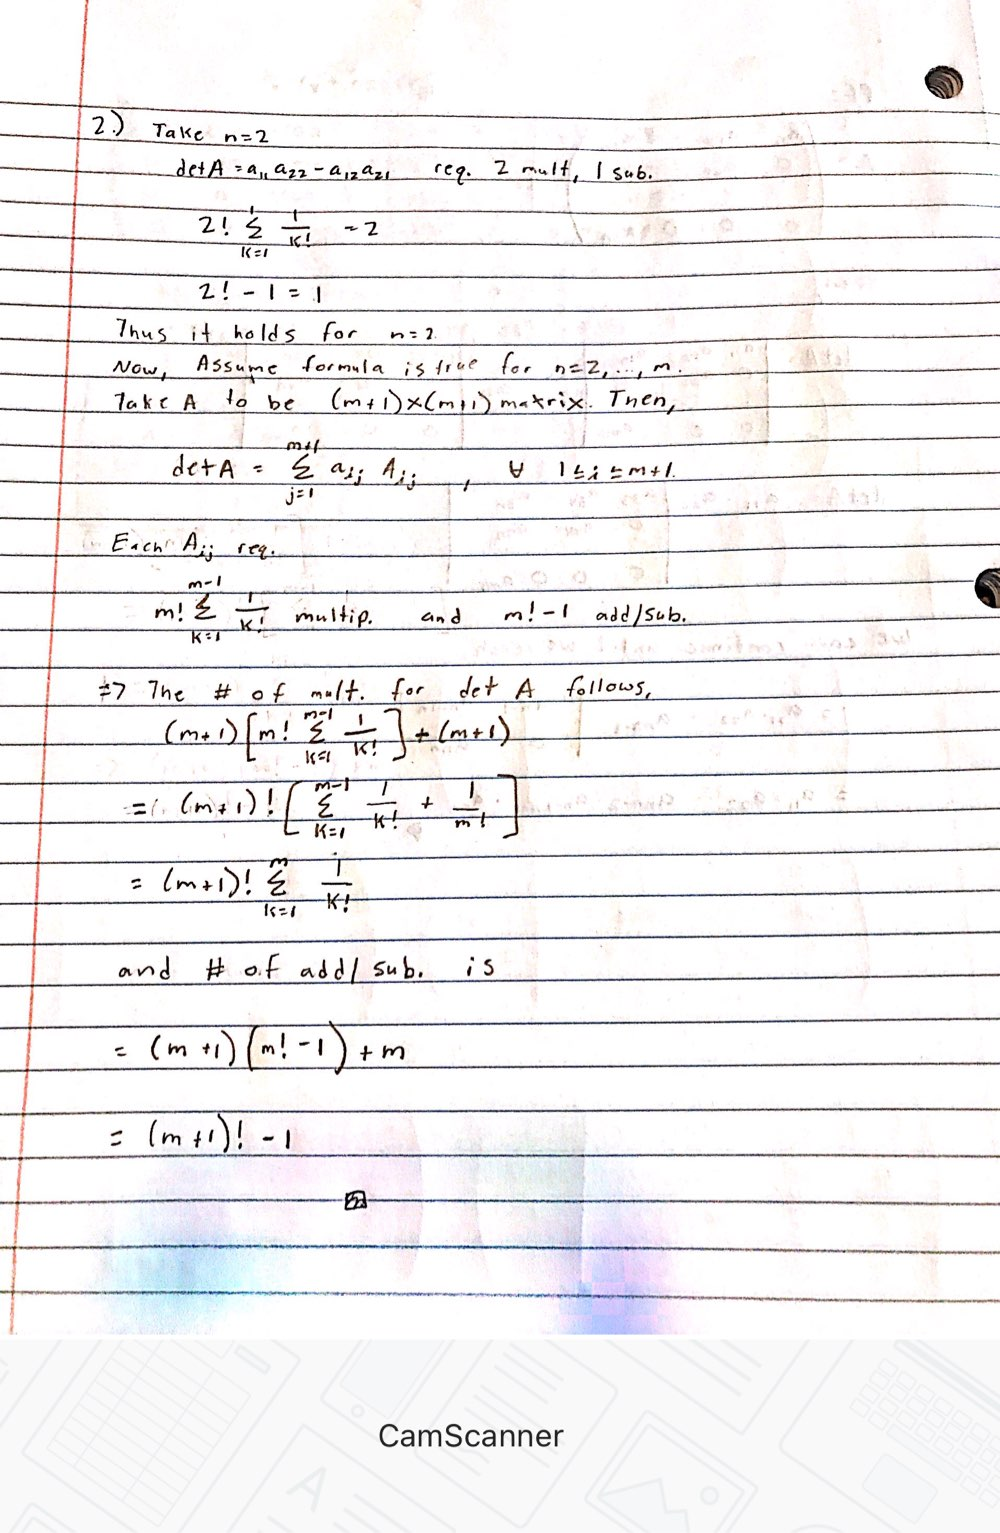 2.) Take n=2
det A = a₁₁ a₂₂ - a₁₂ a₂₁ req. 2 mult, 1 sub.
2! ∑_{k=1}^{1} 1/k! = 2
2! - 1 = 1
Thus it holds for n=2.
Now, Assume formula is true for n=2,...,m.
Take A to be (m+1)×(m+1) matrix. Then,
det A = ∑_{j=1}^{m+1} a_{ij} A_{ij} , ∀ 1≤i≤m+1.
Each A_{ij} req.
m! ∑_{k=1}^{m-1} 1/k! multip. and m!-1 add/sub.
⇒ The # of mult. for det A follows,
(m+1)[m! ∑_{k=1}^{m-1} 1/k!] + (m+1)
= (m+1)! [∑_{k=1}^{m-1} 1/k! + 1/m!]
= (m+1)! ∑_{k=1}^{m} 1/k!
and # of add/sub. is
= (m+1)(m!-1) + m
= (m+1)! - 1
CamScanner